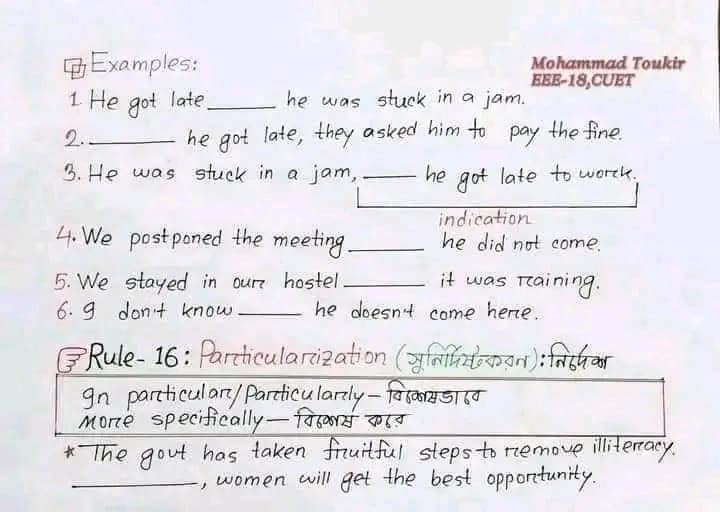 Examples:
Mohammad Toukir
EEE-18,CUET
1. He got late ______ he was stuck in a jam.
2. ______ he got late, they asked him to pay the fine.
3. He was stuck in a jam, ______ he got late to work.
indication
4. We postponed the meeting ______ he did not come.
5. We stayed in our hostel ______ it was raining.
6. I don't know ______ he doesn't come here.
Rule-16: Particularization (সুনির্দিষ্টকরন): নির্দেশ
In particular/Particularly – বিশেষভাবে
More specifically – বিশেষ করে
* The govt has taken fruitful steps to remove illiteracy.
______, women will get the best opportunity.